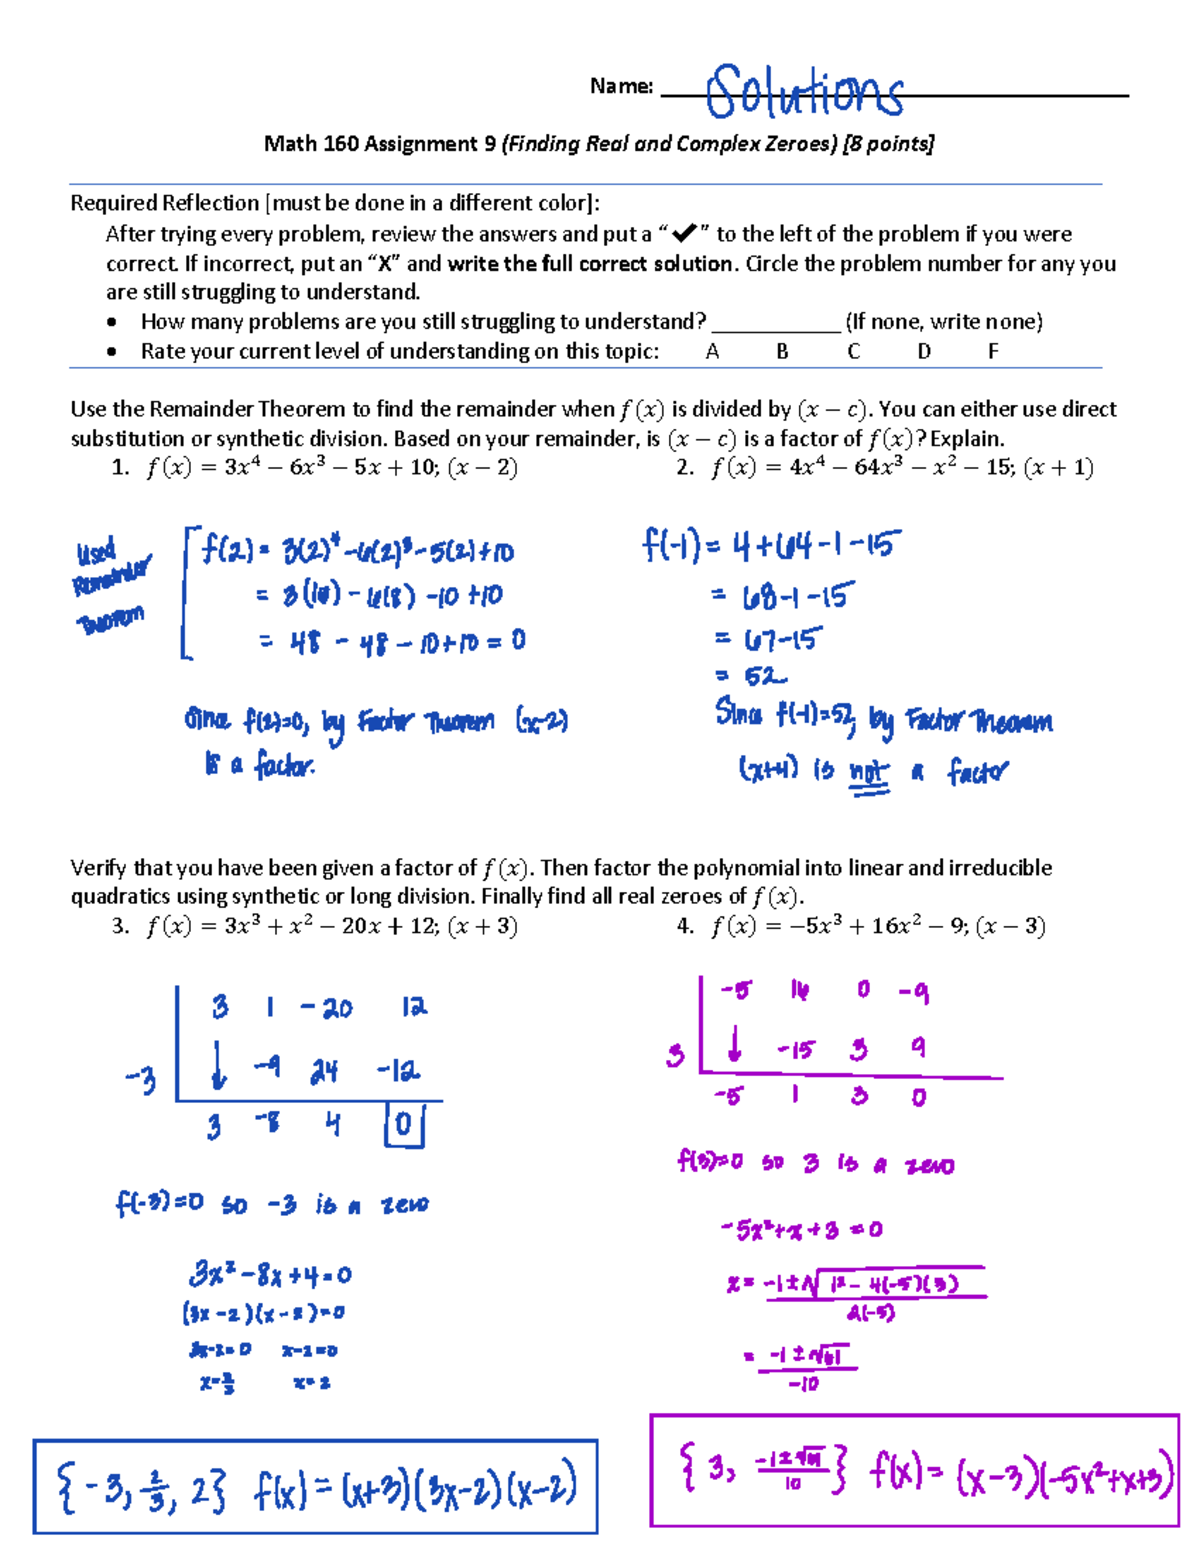 Name: Solutions
Math 160 Assignment 9 (Finding Real and Complex Zeroes) [8 points]
Required Reflection [must be done in a different color]:
After trying every problem, review the answers and put a “✔” to the left of the problem if you were
correct. If incorrect, put an “X” and write the full correct solution. Circle the problem number for any you
are still struggling to understand.
• How many problems are you still struggling to understand? ___________ (If none, write none)
• Rate your current level of understanding on this topic: A B C D F
Use the Remainder Theorem to find the remainder when f(x) is divided by (x − c). You can either use direct
substitution or synthetic division. Based on your remainder, is (x − c) is a factor of f(x)? Explain.
1. f(x) = 3x⁴ − 6x³ − 5x + 10; (x − 2)
Used
Remainder
Theorem
f(2) = 3(2)⁴ - 6(2)³ - 5(2) + 10
= 3(16) - 6(8) - 10 + 10
= 48 - 48 - 10 + 10 = 0
Since f(2)=0, by Factor Theorem (x-2)
is a factor.
2. f(x) = 4x⁴ − 64x³ − x² − 15; (x + 1)
f(-1) = 4+64-1-15
= 68-1-15
= 67-15
= 52
Since f(-1)=52, by Factor Theorem
(x+4) is not a factor
Verify that you have been given a factor of f(x). Then factor the polynomial into linear and irreducible
quadratics using synthetic or long division. Finally find all real zeroes of f(x).
3. f(x) = 3x³ + x² − 20x + 12; (x + 3)
3 1 -20 12
-3 ↓ -9 24 -12
3 -8 4 0
f(-3)=0 so -3 is a zero
3x²-8x+4=0
(3x-2)(x-2)=0
3x-2=0 x-2=0
x=2/3 x=2
{-3, 2/3, 2} f(x) = (x+3)(3x-2)(x-2)
4. f(x) = −5x³ + 16x² − 9; (x − 3)
-5 16 0 -9
3 ↓ -15 3 9
-5 1 3 0
f(3)=0 so 3 is a zero
-5x²+x+3=0
x = -1±√1²-4(-5)(3)
2(-5)
= -1±√61
-10
{3, -1±√61/10} f(x)= (x-3)(-5x²+x+3)